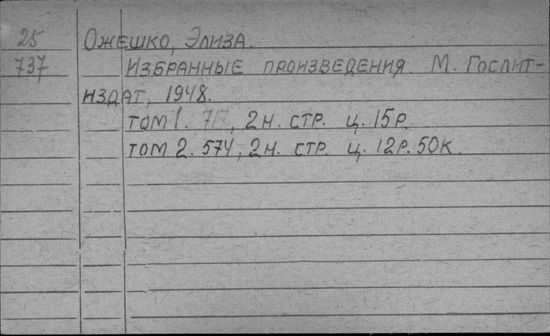 25 ОЖЕШКО, ЭЛИЗА.
737 ИЗБРАННЫЕ ПРОИЗВЕДЕНИЯ. М. ГОСЛИТ-
ИЗДАТ, 1948.
ТОМ 1. 717, 2 Н. СТР. Ц. 15 Р.
ТОМ 2. 574, 2 Н. СТР. Ц. 12 Р. 50 К.